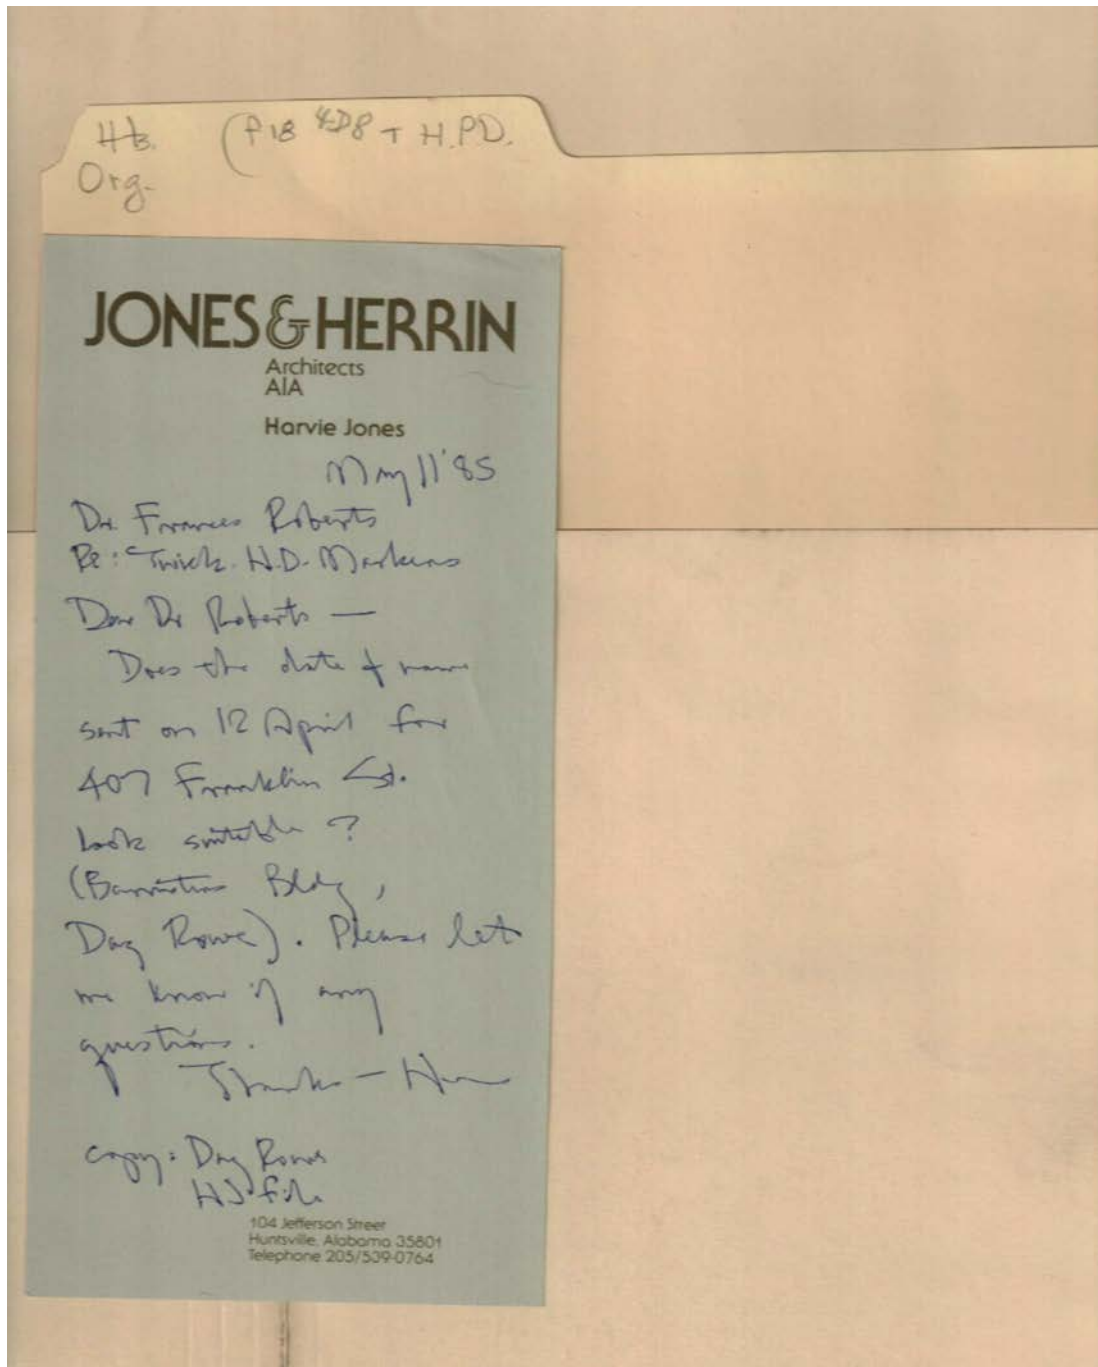 Hb. (P18 4D8 + H.P.D.
Org.
JONES & HERRIN
Architects
AIA
Harvie Jones
May 11 '85
Dr. Frances Roberts
Re: Twick. H.D. Markers
Dear Dr Roberts —
Does the date & name
sent on 12 April for
407 Franklin St.
look suitable ?
(Barristers Bldg,
Day Rowe). Please let
me know if any
questions.
Thanks — Harvie
copy: Day Rowe
HJ file
104 Jefferson Street
Huntsville, Alabama 35801
Telephone 205/539-0764